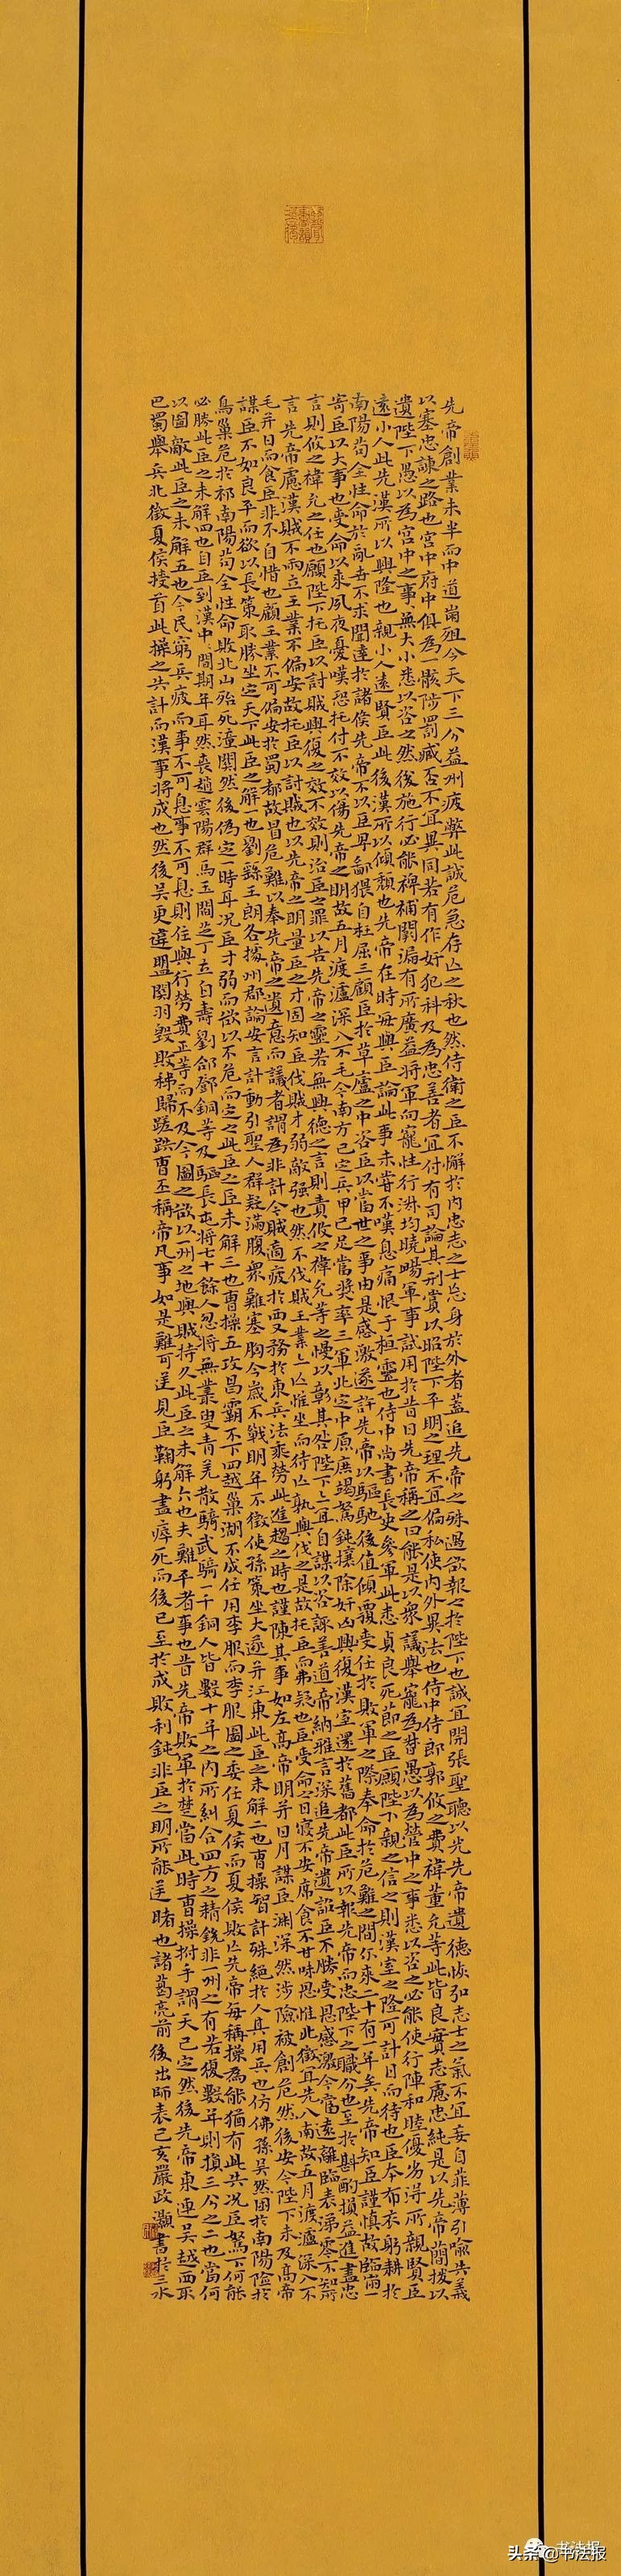 先帝創業未半而中道崩殂今天下三分益州疲弊此誠危急存亡之秋也然侍衛之臣不懈於內忠志之士忘身於外者蓋追先帝之殊遇欲報之於陛下也誠宜開張聖聽以光先帝遺德恢弘志士之氣不宜妄自菲薄引喻失義
以塞忠諫之路也宮中府中俱為一體陟罰臧否不宜異同若有作奸犯科及為忠善者宜付有司論其刑賞以昭陛下平明之理不宜偏私使內外異法也侍中侍郎郭攸之費禕董允等此皆良實志慮忠純是以先帝簡拔以
遺陛下愚以為宮中之事無大小悉以咨之然後施行必能裨補闕漏有所廣益將軍向寵性行淑均曉暢軍事試用於昔日先帝稱之曰能是以眾議舉寵為督愚以為營中之事悉以咨之必能使行陣和睦優劣得所親賢臣
遠小人此先漢所以興隆也親小人遠賢臣此後漢所以傾頹也先帝在時每與臣論此事未嘗不嘆息痛恨于桓靈也侍中尚書長史參軍此悉貞良死節之臣願陛下親之信之則漢室之隆可計日而待也臣本布衣躬耕於
南陽苟全性命於亂世不求聞達於諸侯先帝不以臣卑鄙猥自枉屈三顧臣於草廬之中咨臣以當世之事由是感激遂許先帝以驅馳後值傾覆受任於敗軍之際奉命於危難之間尓來二十有一年矣先帝知臣謹慎故臨崩
寄臣以大事也受命以來夙夜憂嘆恐托付不效以傷先帝之明故五月渡瀘深入不毛今南方已定兵甲已足當獎率三軍北定中原庶竭駑鈍攘除奸凶興復漢室還於舊都此臣所以報先帝而忠陛下之職分也至於斟酌損益進盡忠
言則攸之禕允之任也願陛下托臣以討賊興復之效不效則治臣之罪以告先帝之靈若無興德之言則責攸之禕允等之慢以彰其咎陛下亦宜自謀以咨諏善道察納雅言深追先帝遺詔臣不勝受恩感激今當遠離臨表涕零不知所
言先帝慮漢賊不兩立王業不偏安故托臣以討賊也以先帝之明量臣之才固知臣伐賊才弱敵强也然不伐賊王業亦亡惟坐而待亡孰與伐之是故托臣而弗疑也臣受命之日寢不安席食不甘味思惟北徵宜先入南故五月渡瀘深入不
毛并日而食臣非不自惜也顧王業不可偏安於蜀都故冒危難以奉先帝之遺意而議者謂為非計今賊適疲於西又務於東兵法乘勞此進趨之時也謹陳其事如左高帝明并日月謀臣淵深然涉險被創危然後安今陛下未及高帝
謀臣不如良平而欲以長策取勝坐定天下此臣之解也劉繇王朗各據州郡論安言計動引聖人群疑滿腹眾難塞胸今歲不戰明年不徵使孫策坐大遂并江東此臣之未解二也曹操智計殊絕於人其用兵也仿佛孫吳然困於南陽險於
烏巢危於祁南陽苟全性命敗北山殆死潼關然後偽定一時耳况臣才弱而欲以不危而定之此臣之臣未解三也曹操五攻昌霸不下四越巢湖不成任用李服而李服圖之委任夏侯而夏侯敗亡先帝每稱操為能猶有此失况臣駑下何能
必勝此臣之未解四也自臣到漢中間期年耳然喪趙雲陽群馬玉閻芝丁立白壽劉郃鄧銅等及驅長屯將七十餘人忽將無叢叟青羌散騎武騎一千銅人皆數十年之內所糾合四方之精銳非一州之有若復數年則損三分之二也當何
以圖敵此臣之未解五也今民窮兵疲而事不可息事不可息則住與行勞費正等而不及今圖之欲以一州之地與賊持久此臣之未解六也夫難平者事也昔先帝敗軍於楚當此時曹操拊手謂天已定然後先帝東連吳越西取
巴蜀舉兵北徵夏侯授首此操之失計而漢事將成也然後吳更違盟關羽毀敗秭歸蹉跌曹丕稱帝凡事如是難可逆見臣鞠躬盡瘁死而後已至於成敗利鈍非臣之明所能逆睹也諸葛亮前後出師表己亥嚴政灝書於三水
头条 @书法报
书法报